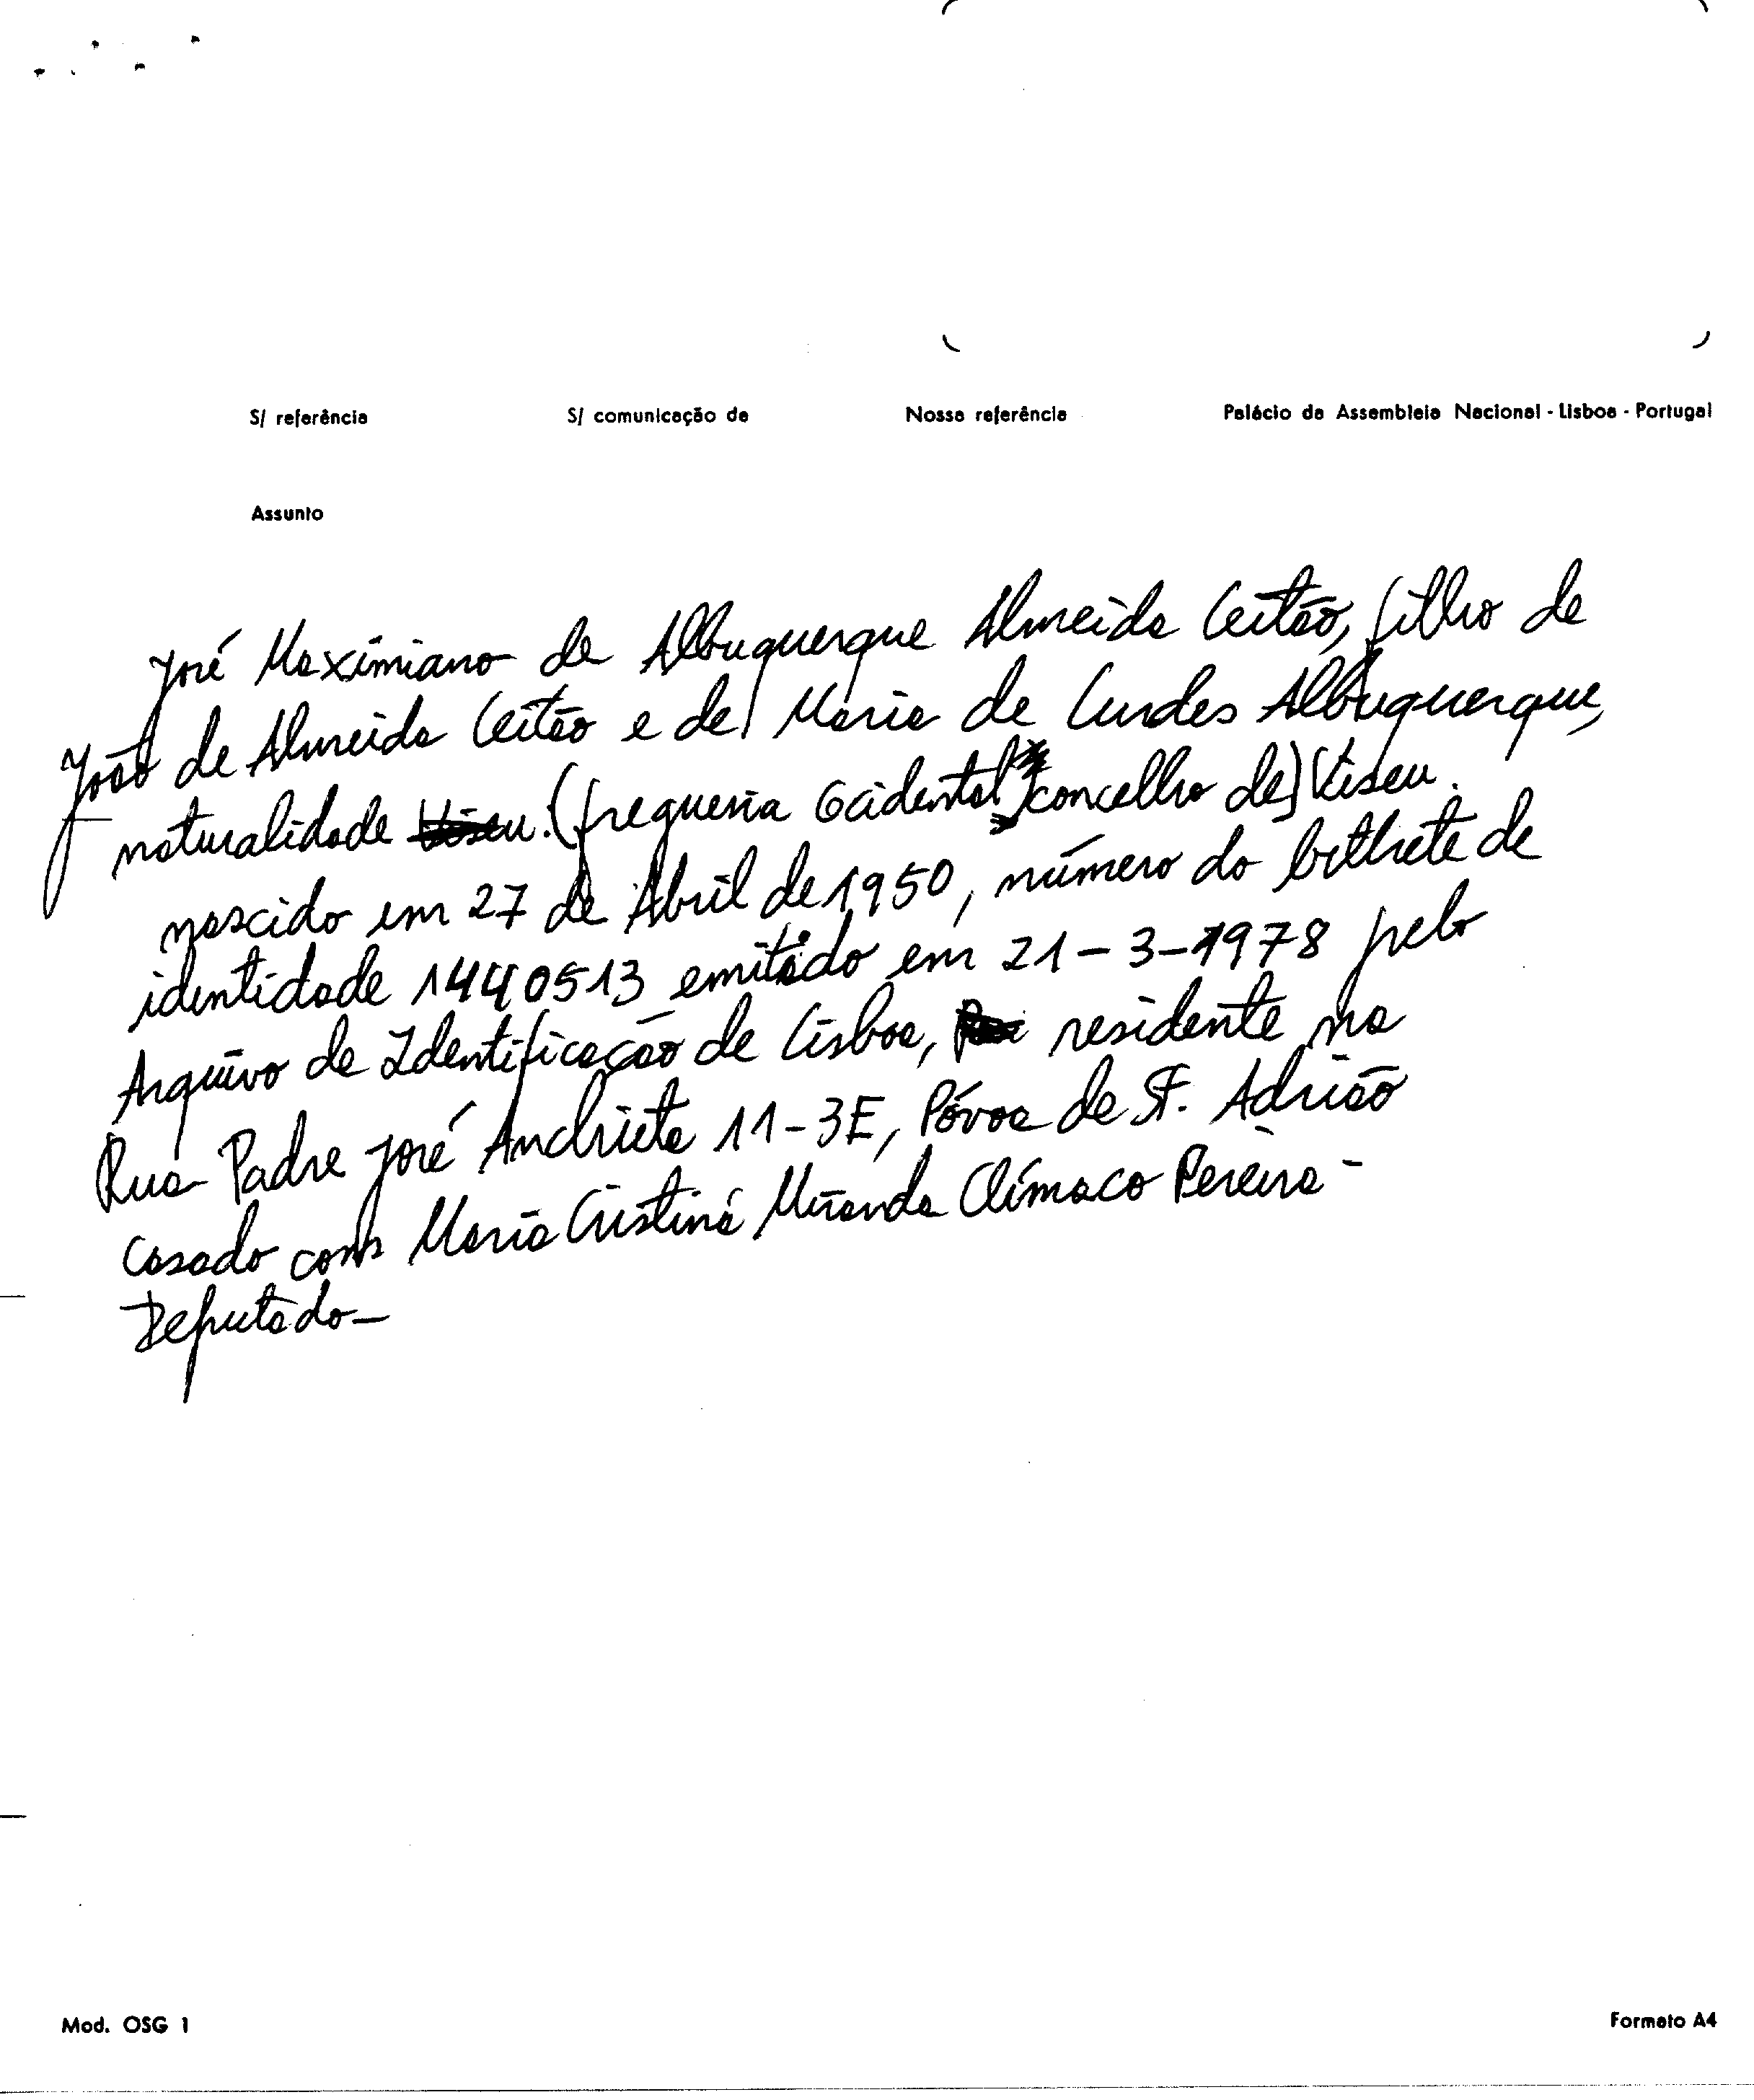 S/ referência S/ comunicação de Nossa referência Palácio da Assembleia Nacional - Lisboa - Portugal
Assunto
José Maximiano de Albuquerque Almeida Leitão, filho de
João de Almeida Leitão e de Maria de Lurdes Albuquerque,
naturalidade Viseu. (freguesia Ocidental concelho de) Viseu.
nascido em 27 de Abril de 1950, número do bilhete de
identidade 14440513 emitido em 21-3-1978 pelo
Arquivo de Identificação de Lisboa, residente na
Rua Padre José Anchieta 11-3E, Póvoa de St. Adrião
Casado com Maria Cristina Miranda Clímaco Pereira -
Deputado -
Mod. OSG 1 Formato A4